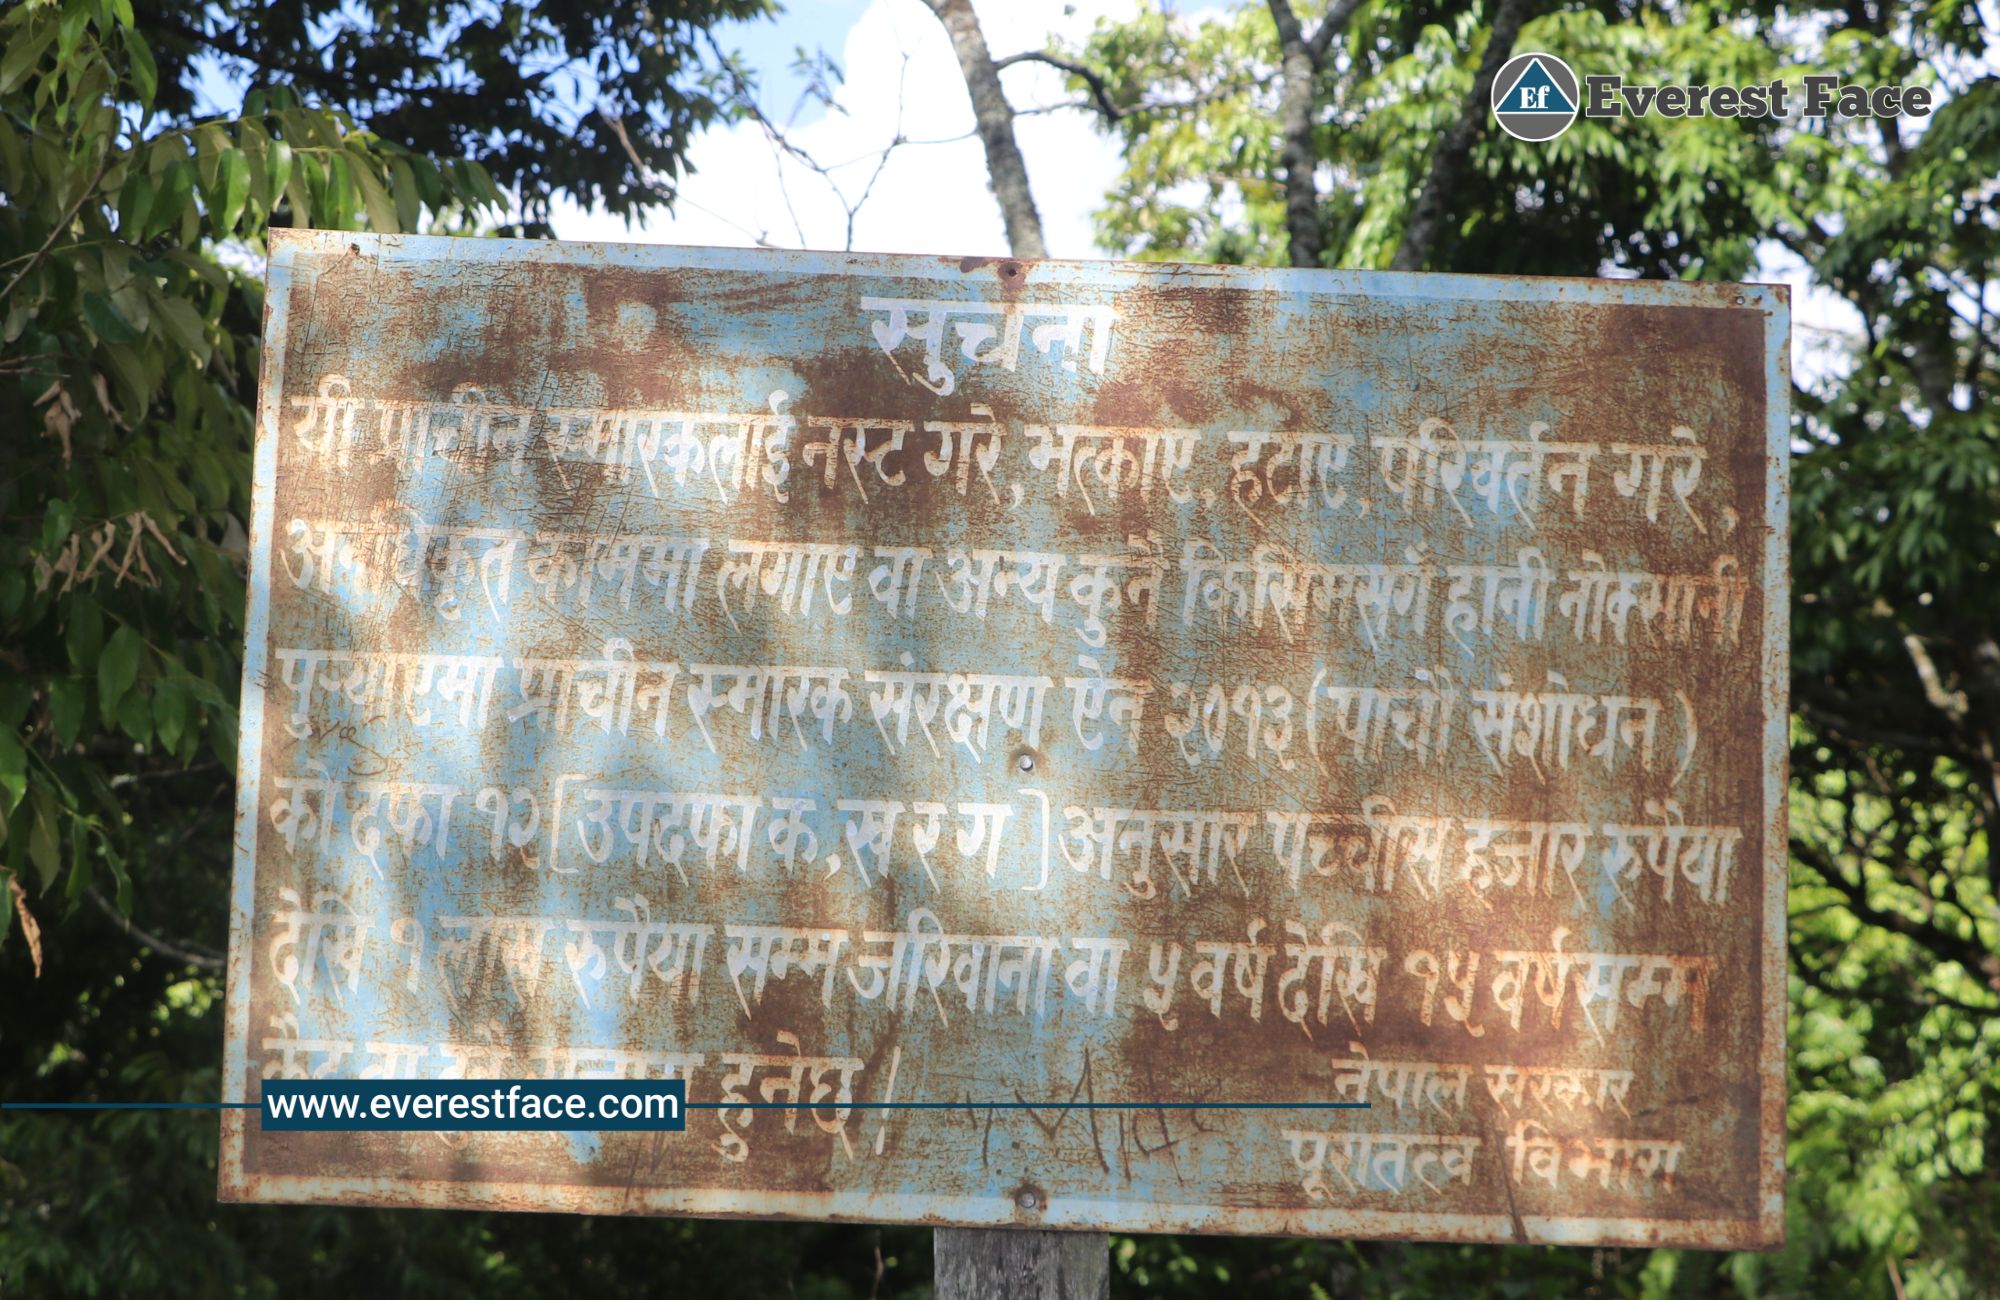 Ef Everest Face
सुचना
यी प्राचीन स्मारकलाई नस्ट गरे, भत्काए, हटाए, परिवर्तन गरे,
अनधिकृत काममा लगाए वा अन्य कुनै किसिमसगँ हानी नोक्सानी
पुर्‍याएमा प्राचीन स्मारक संरक्षण ऐन २०१३ (पाचौ संशोधन)
को दफा १२ [उपदफा क, ख र ग] अनुसार पच्चीस हजार रुपैया
देखि १ लाख रुपैया सम्म जरिवाना वा ५ वर्ष देखि १५ वर्षसम्म
कैद वा दुवै सजाय हुनेछ।
नेपाल सरकार
पूरातत्व विभाग
www.everestface.com